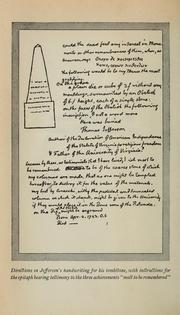 could the dead feel any interest in Monu-
ments or other remembrances of them, when, as
Anacreon says
the following would be to my Manes the most
gratifying.
On the grave
a plain die or cube of 3.f without any
mouldings, surmounted by an Obelisk
of 6.f height, each of a single stone:
on the faces of the Obelisk the following
inscription, & not a word more
Here was buried
Thomas Jefferson
Author of the Declaration of American Independance
of the Statute of Virginia for religious freedom
& Father of the University of Virginia
because by these, as testimonials that I have lived, I wish most to
be remembered. to be of the coarse stone of which
my columns are made, that no one might be tempted
hereafter to destroy it for the value of the materials.
my bust by Ceracchi, with the pedestal and truncated
column on which it stands, might be given to the University
if they would place it in the Dome room of the Rotunda.
on the Die, might be engraved
Born Apr. 2. 1743. O.S.
Died
Directions in Jefferson's handwriting for his tombstone, with instructions for
the epitaph bearing testimony to the three achievements "most to be remembered"